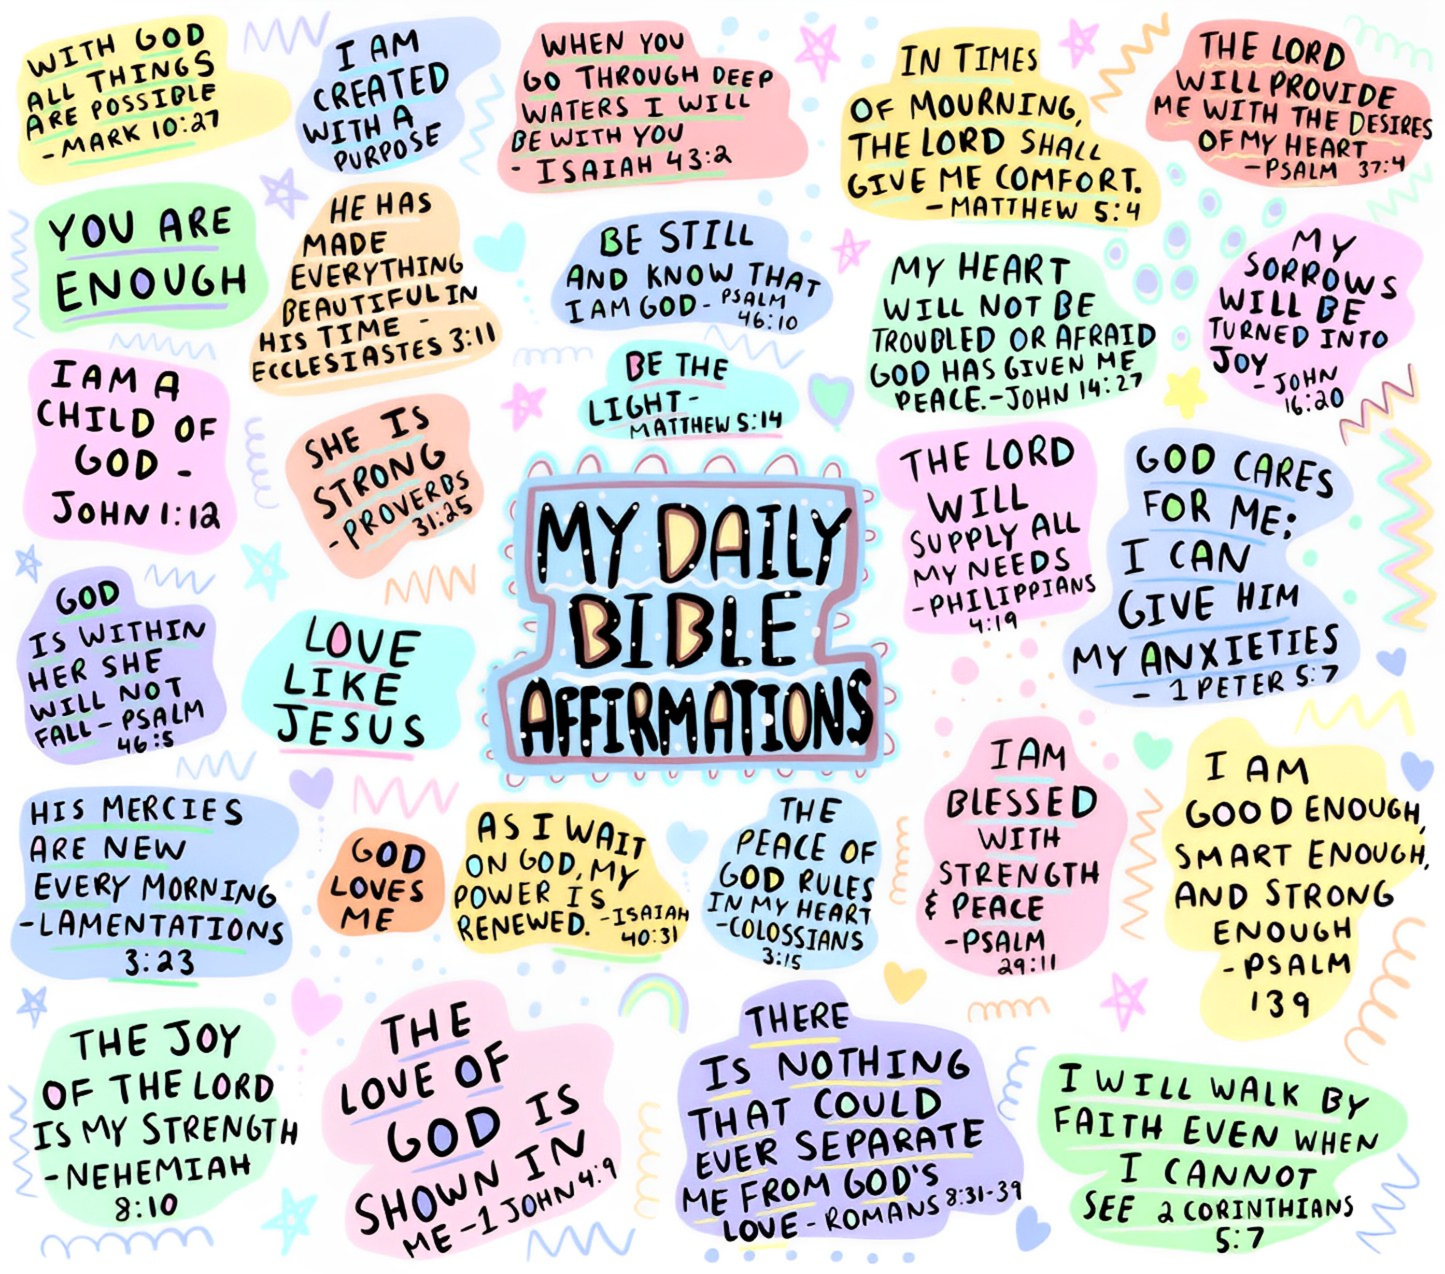 WITH GOD
ALL THINGS
ARE POSSIBLE
- MARK 10:27
I AM
CREATED
WITH A
PURPOSE
WHEN YOU
GO THROUGH DEEP
WATERS I WILL
BE WITH YOU
- ISAIAH 43:2
IN TIMES
OF MOURNING,
THE LORD SHALL
GIVE ME COMFORT.
- MATTHEW 5:4
THE LORD
WILL PROVIDE
ME WITH THE DESIRES
OF MY HEART
-PSALM 37:4
YOU ARE
ENOUGH
HE HAS
MADE
EVERYTHING
BEAUTIFUL IN
HIS TIME -
ECCLESIASTES 3:11
BE STILL
AND KNOW THAT
I AM GOD - PSALM
46:10
MY HEART
WILL NOT BE
TROUBLED OR AFRAID
GOD HAS GIVEN ME
PEACE.-JOHN 14:27
MY
SORROWS
WILL BE
TURNED INTO
JOY
- JOHN
16:20
I AM A
CHILD OF
GOD -
JOHN 1:12
SHE IS
STRONG
- PROVERBS
31:25
BE THE
LIGHT-
MATTHEW 5:14
MY DAILY
BIBLE
AFFIRMATIONS
THE LORD
WILL
SUPPLY ALL
MY NEEDS
-PHILIPPIANS
4:19
GOD CARES
FOR ME;
I CAN
GIVE HIM
MY ANXIETIES
- 1 PETER 5:7
GOD
IS WITHIN
HER SHE
WILL NOT
FALL - PSALM
46:5
LOVE
LIKE
JESUS
HIS MERCIES
ARE NEW
EVERY MORNING
-LAMENTATIONS
3:23
GOD
LOVES
ME
AS I WAIT
ON GOD, MY
POWER IS
RENEWED. -ISAIAH
40:31
THE
PEACE OF
GOD RULES
IN MY HEART
-COLOSSIANS
3:15
I AM
BLESSED
WITH
STRENGTH
& PEACE
-PSALM
29:11
I AM
GOOD ENOUGH,
SMART ENOUGH,
AND STRONG
ENOUGH
- PSALM
139
THE JOY
OF THE LORD
IS MY STRENGTH
-NEHEMIAH
8:10
THE
LOVE OF
GOD IS
SHOWN IN
ME -1 JOHN 4:9
THERE
IS NOTHING
THAT COULD
EVER SEPARATE
ME FROM GOD'S
LOVE - ROMANS 8:31-39
I WILL WALK BY
FAITH EVEN WHEN
I CANNOT
SEE 2 CORINTHIANS
5:7